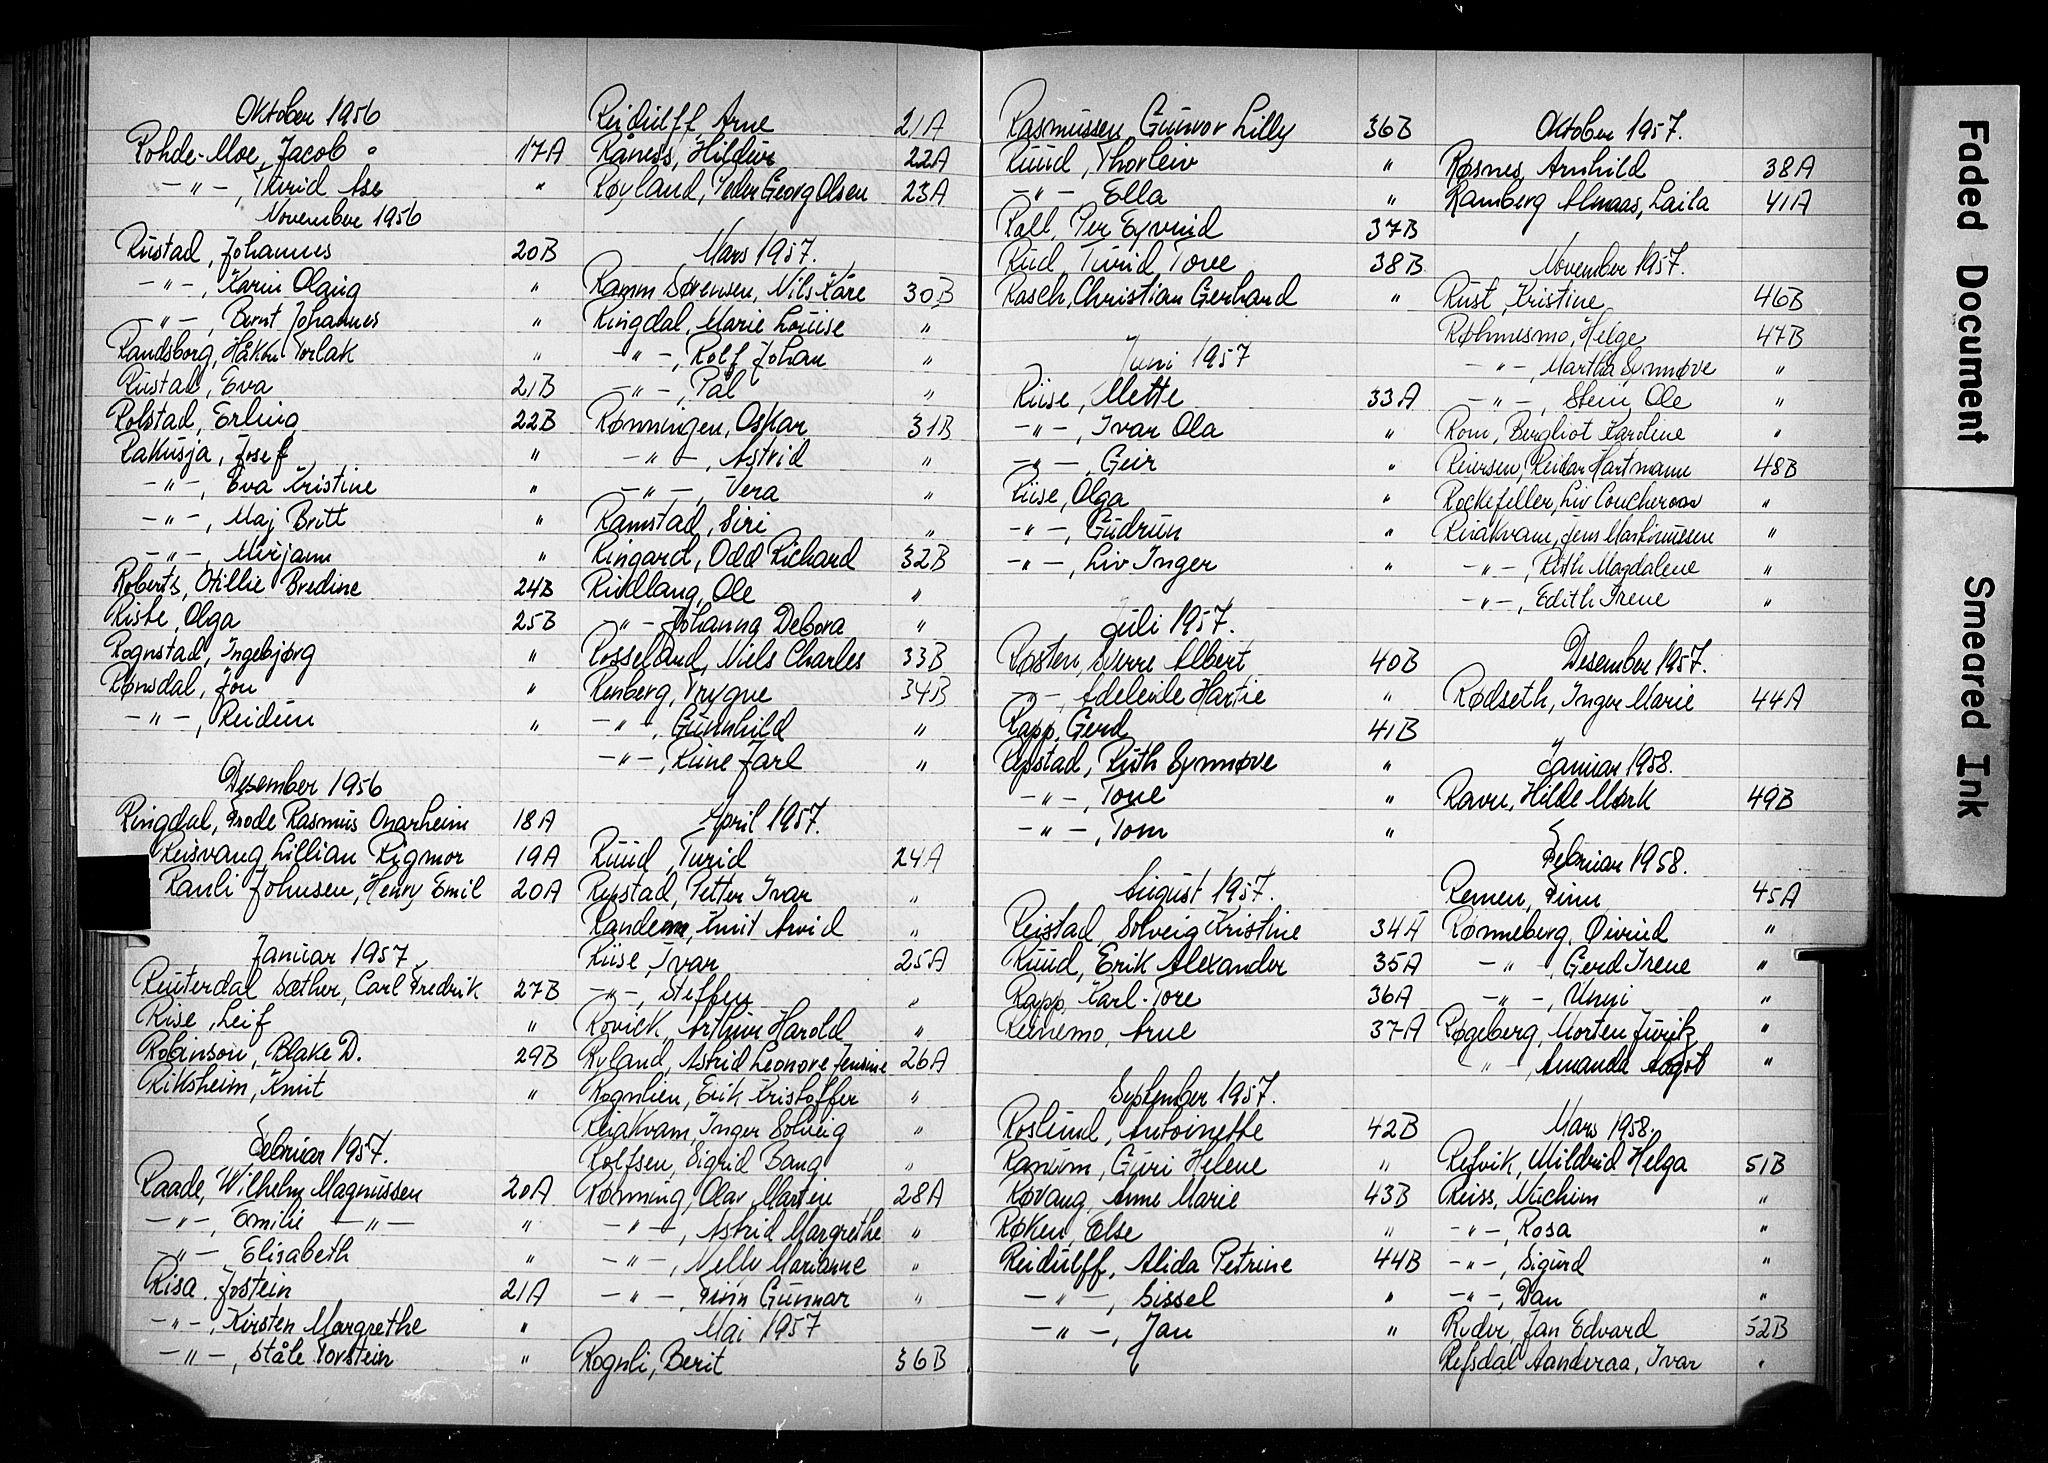 Oktober 1956
Rohde-Moe, Jacob 17A
— " —, Turid Åse "
November 1956
Rustad, Johannes 20B
— " —, Karin Olaug "
— " —, Bernt Johannes "
Randsborg, Håkon Torlak "
Rustad, Eva 21B
Rolstad, Erling 22B
Rakusja, Josef "
— " —, Eva Kristine "
— " —, Maj Britt "
— " —, Mirjam "
Roberts, Otillie Bredine 24B
Riste, Olga 25B
Rognstad, Ingebjørg "
Rønsdal, Jon "
— " —, Reidun "
Desember 1956
Ringdal, Frode Rasmus Onarheim 18A
Reisvang, Lillian Rigmor 19A
Ranli Johnsen, Henry Emil 20A
Januar 1957
Reuterdal Sæther, Carl Fredrik 27B
Rise, Leif "
Robinson, Blake D. 29B
Riksheim, Knut "
Februar 1957.
Raade, Wilhelm Magnussen 20A
— " —, Emilie — " — "
— " — Elisabeth "
Risa, Jostein 21A
— " —, Kirsten Margrethe "
— " —, Ståle Torstein "
Reidulff, Arne 21A
Råness, Hildur 22A
Røyland, Peder Georg Olsen 23A
Mars 1957.
Ramm Sørensen, Nils Kåre 30B
Ringdal, Marie Louise "
— " —, Rolf Johan "
— " —, Pål "
Rønningen, Oskar 31B
— " —, Astrid "
— " —, Vera "
Ramstad, Siri "
Ringard, Odd Richard 32B
Ole "
— " — Johanna Debora "
Rosseland, Niels Charles 33B
Renberg, Trygve 34B
— " —, Gunnhild "
— " —, Rune Jarl "
April 1957.
Ruud, Turid 24A
Repstad, Petter Ivar "
Randem, Knut Arvid "
Riise, Ivar 25A
— " —, Steffen "
Rovick, Arthur Harold "
Ryland, Astrid Leonore Jensine 26A
Rognlien, Erik Kristoffer "
Reiakvam, Inger Solveig "
Rolfsen, Sigrid Bang "
Rønning, Olav Martin 28A
— " —, Astrid Margrethe "
— " —, Nelly Marianne "
— " —, Finn Gunnar "
Mai 1957
Rognli, Berit 36B
Rasmussen, Gunvor Lilly 36B
Ruud, Thorleiv "
— " — Ella "
Rall, Per Eyvind 37B
Rud, Turid Tove 38B
Rasch, Christian Gerhard "
Juni 1957
Riise, Mette 33A
— " —, Ivar Ola "
— " —, Geir "
Riise, Olga "
— " —, Gudrun "
— " —, Liv Inger "
Juli 1957.
Røsten, Sverre Albert 40B
— " —, Adeleide Hartie "
Rapp, Gerd 41B
Repstad, Ruth Synnøve "
— " —, Tone "
— " —, Tom "
August 1957.
Reistad, Solveig Kristine 34A
Ruud, Erik Alexander 35A
Rapp, Karl-Tore 36A
Reinemo, Arne 37A
September 1957.
Roslund, Antoinette 42B
Ranum, Guri Helene "
Røvang, Anne Marie 43B
Røken, Else "
Reidulff, Alida Petrine 44B
— " —, Sissel "
— " —, Jan "
Oktober 1957.
Røsnes, Arnhild 38A
Ramberg Almaas, Laila 41A
November 1957.
Rust, Kristine 46B
Røhmesmo, Helge 47B
— " —, Martha Synnøve "
— " —, Stein Ole "
Rom, Bergliot Karoline "
Reiersen, Reidar Hartmann 48B
Rockefeller, Liv Coucheron "
Reiakvam, Jens Martinussen "
— " —, Ruth Magdalene "
— " —, Edith Irene "
Desember 1957.
Rødseth, Inger Marie 44A
Januar 1958.
Ravn, Hilde Mørk 49B
Februar 1958.
Remen, Finn 45A
Rønneberg, Øivind "
— " —, Gerd Irene "
— " —, Unni "
Røgeberg, Morten Juritz "
— " —, Amanda Aagot "
Mars 1958.
Refvik, Mildrid Helga 51B
Reiss, Nuchim "
— " —, Rosa "
— " —, Sigurd "
— " —, Dan "
Ryder, Jan Edvard 52B
Refsdal Aanderaa, Ivar "
Faded Document
Smeared Ink